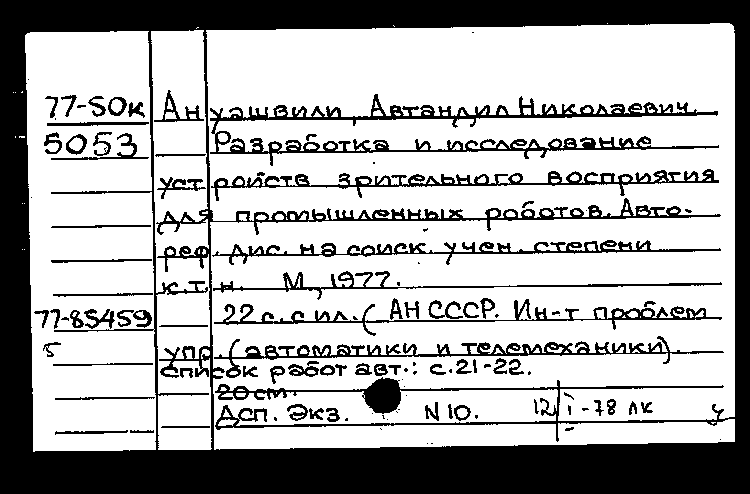 77-5Ок Ануашвили, Автандил Николаевич.
5053 Разработка и исследование
устройств зрительного восприятия
для промышленных роботов. Авто-
реф. дис. на соиск. учен. степени
к.т.н. М., 1977.
77-85459 22 с. с ил. (АН СССР. Ин-т проблем
5 упр. (автоматики и телемеханики).
Список работ авт.: с.21-22.
20 см.
Дсп. Экз. N 10. 12/I-78 ЛК у